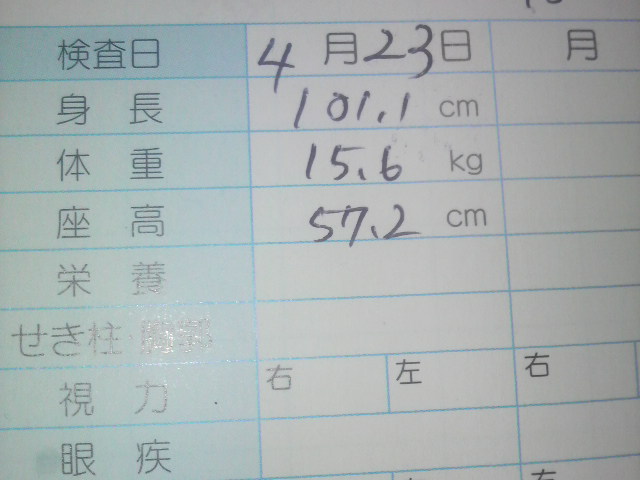 検査日 4月23日 月
身長 101.1 cm
体重 15.6 kg
座高 57.2 cm
栄養
せき柱
視力 右 左 右
眼疾